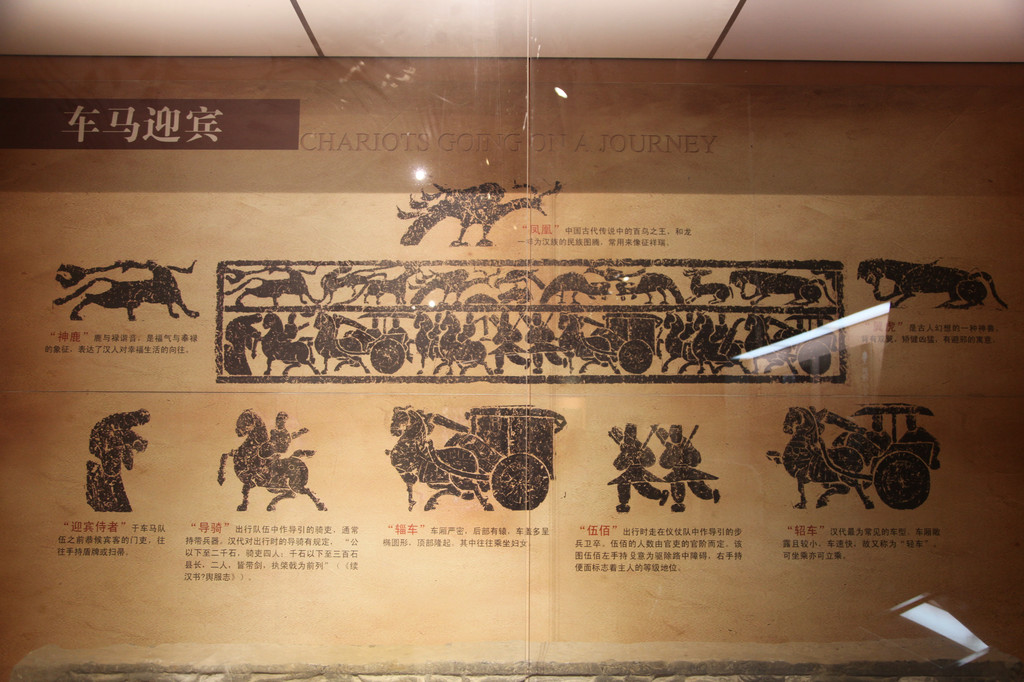 车马迎宾
CHARIOTS GOING ON A JOURNEY
“凤凰” 中国古代传说中的百鸟之王，和龙
一样为汉族的民族图腾，常用来像征祥瑞。
“神鹿” 鹿与禄谐音，是福气与奉禄
的象征，表达了汉人对幸福生活的向往。
虎” 是古人幻想的一种神兽，
“迎宾侍者” 于车马队
伍之前恭候宾客的门吏，往
往手持盾牌或扫帚。
“导骑” 出行队伍中作导引的骑吏，通常
持带兵器，汉代对出行时的导骑有规定，“公
以下至二千石，骑吏四人；千石以下至三百石
县长，二人，皆带剑，执棨戟为前列”（《续
汉书?舆服志》）。
“辎车” 车厢严密，后部有辕，车盖多呈
椭圆形，顶部隆起，其中往往乘坐妇女。
“伍佰” 出行时走在仪仗队中作导引的步
兵卫卒，伍佰的人数由官吏的官阶而定，该
图伍佰左手持 意为驱除路中障碍，右手持
便面标志着主人的等级地位。
“轺车” 汉代最为常见的车型，车厢敞
露且较小，车速快，故又称为“轻车”，
可坐乘亦可立乘。